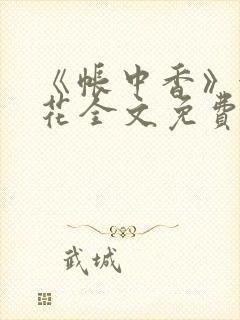 《帐中香》
花全文免費
武城